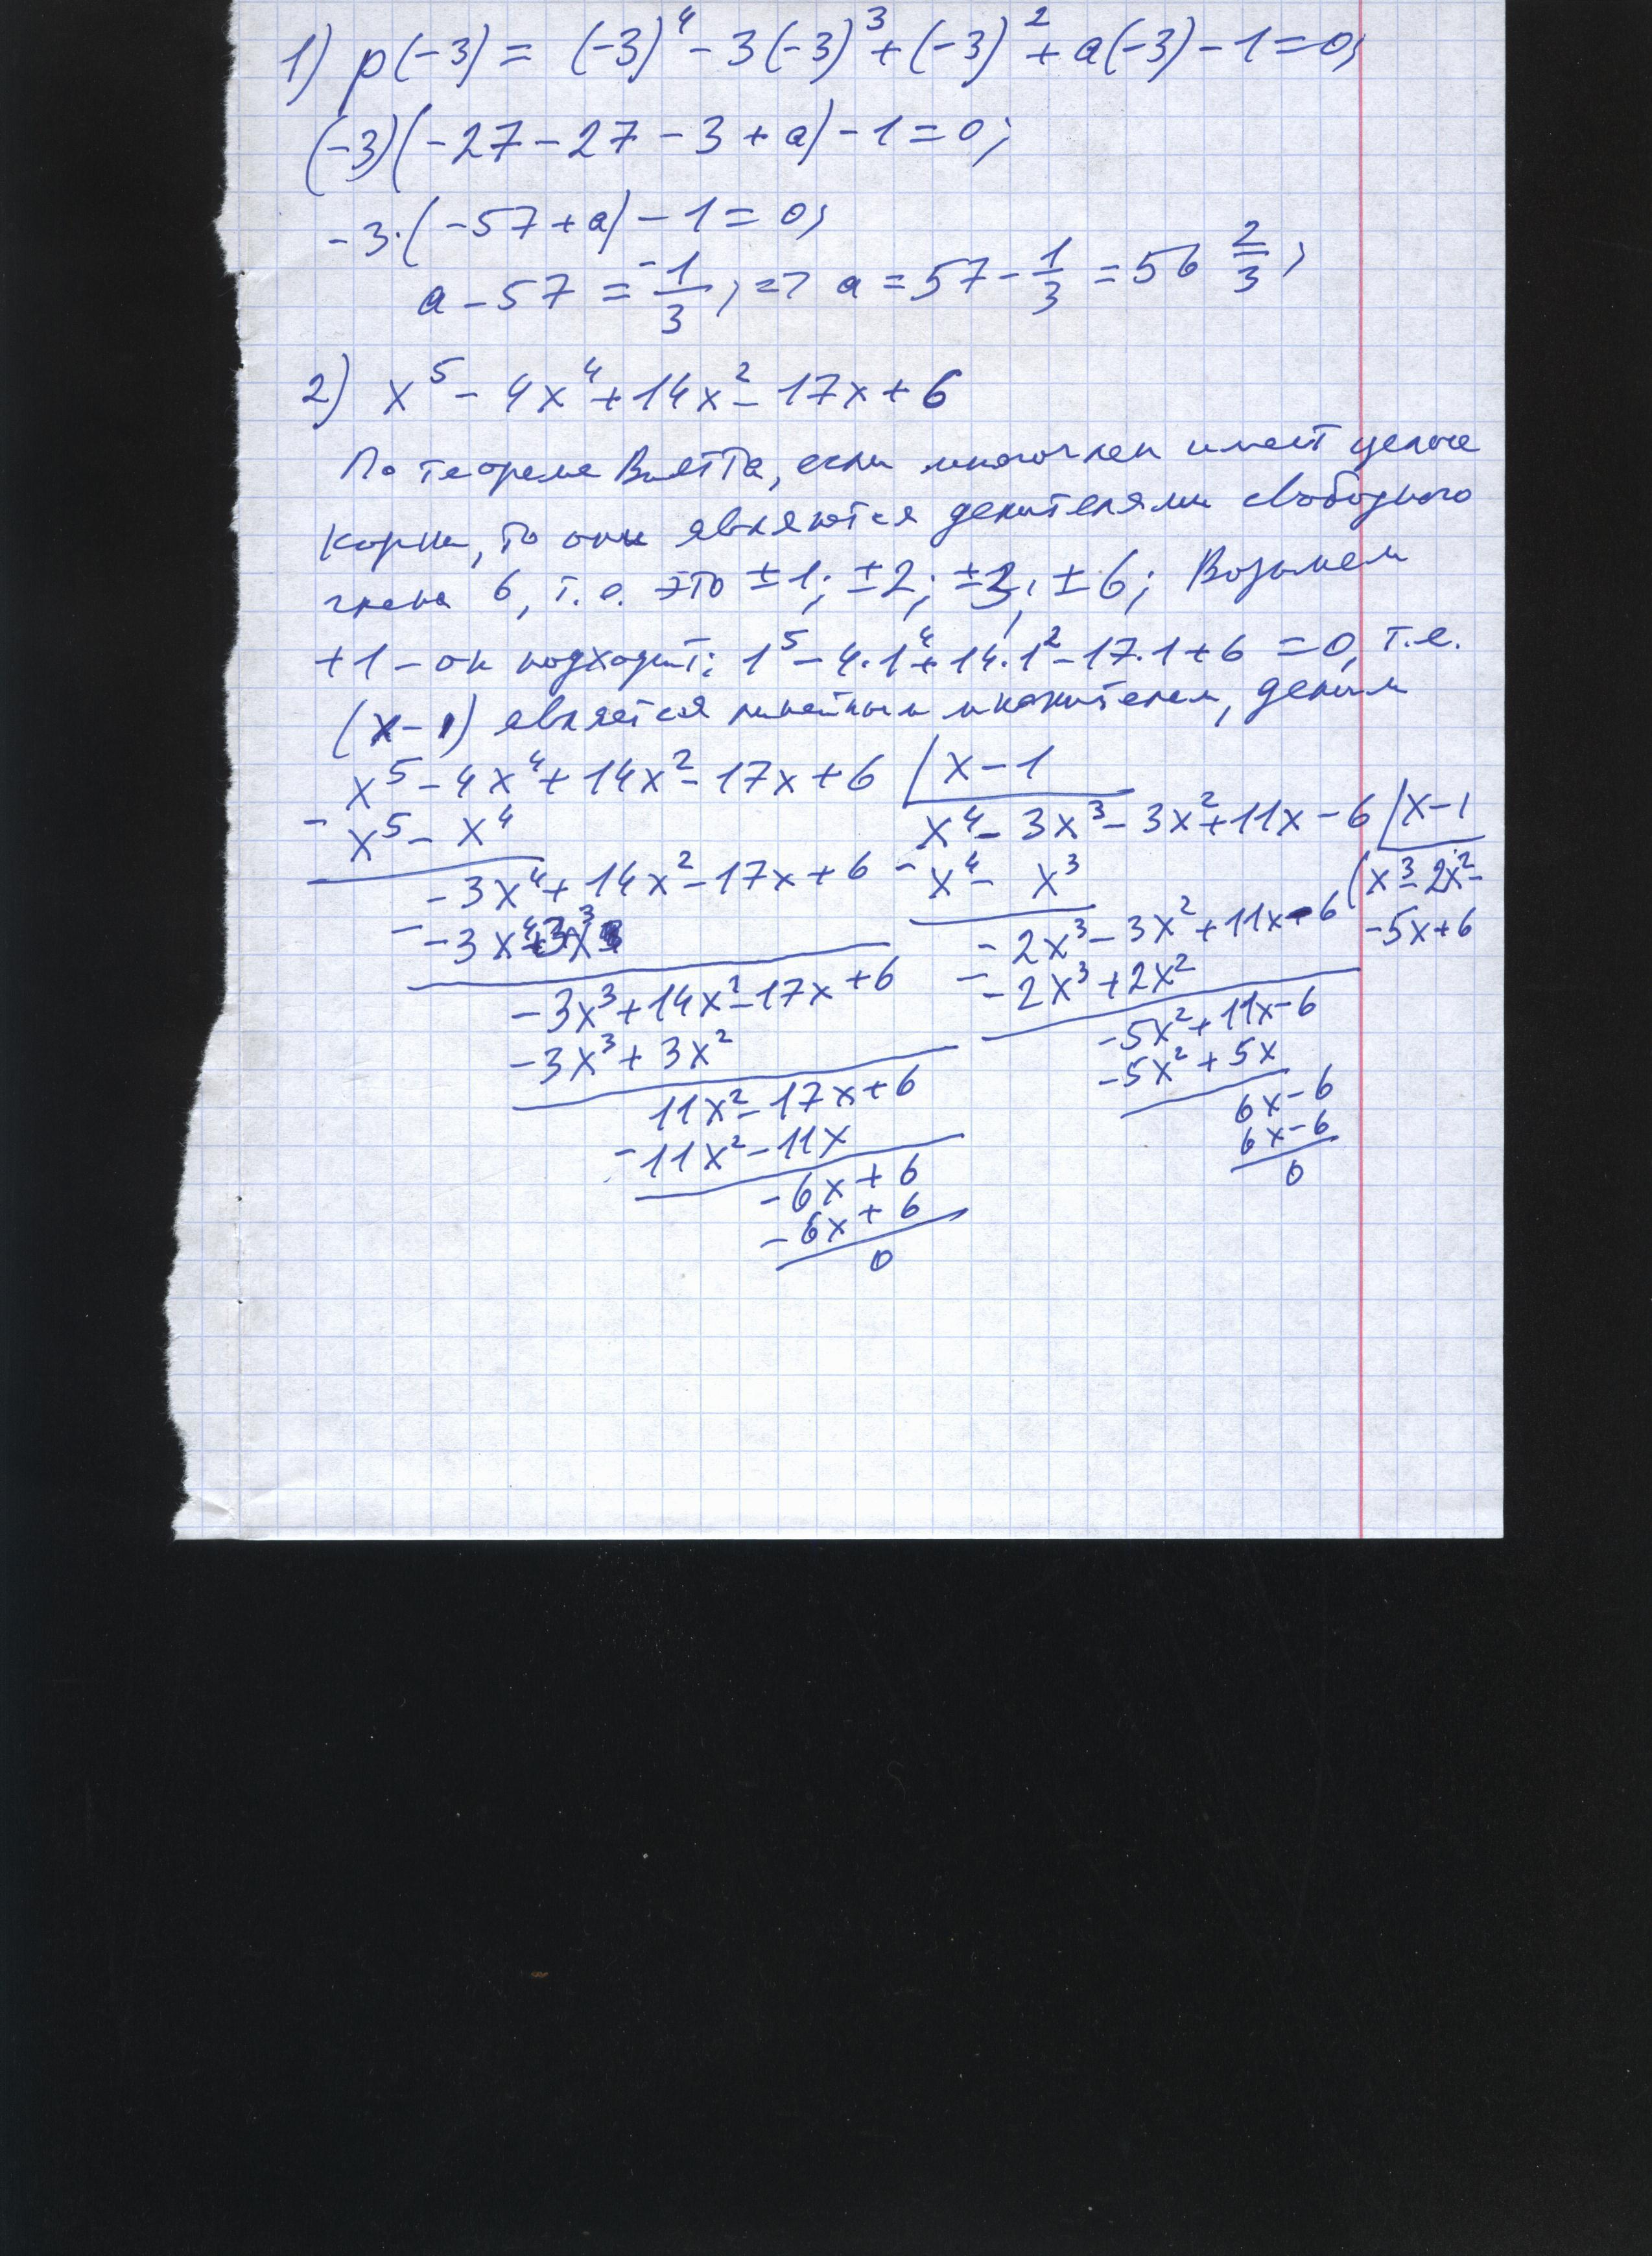 1) p(-3) = (-3)⁴ - 3(-3)³ + (-3)² + a(-3) - 1 = 0;
(-3)(-27 - 27 - 3 + a) - 1 = 0;
-3·(-57 + a) - 1 = 0;
a - 57 = -1/3; => a = 57 - 1/3 = 56 2/3;
2) x⁵ - 4x⁴ + 14x² - 17x + 6
По теореме Виетта, если многочлен имеет целые
корни, то они являются делителями свободного
члена 6, т.е. это ±1; ±2; ±3; ±6; Возьмем
+1 - он подходит: 1⁵ - 4·1⁴ + 14·1² - 17·1 + 6 = 0, т.е.
(x - 1) является линейным множителем, делим
x⁵ - 4x⁴ + 14x² - 17x + 6 | x - 1
- x⁵ - x⁴
x⁴ - 3x³ - 3x² + 11x - 6 | x - 1
-3x⁴ + 14x² - 17x + 6
- x⁴ - x³
(x³ - 2x² -
-5x + 6
- -3x⁴ + 3x³
-2x³ - 3x² + 11x - 6
- -2x³ + 2x²
-3x³ + 14x² - 17x + 6
-5x² + 11x - 6
-3x³ + 3x²
-5x² + 5x
11x² - 17x + 6
6x - 6
- 11x² - 11x
6x - 6
0
-6x + 6
-6x + 6
0